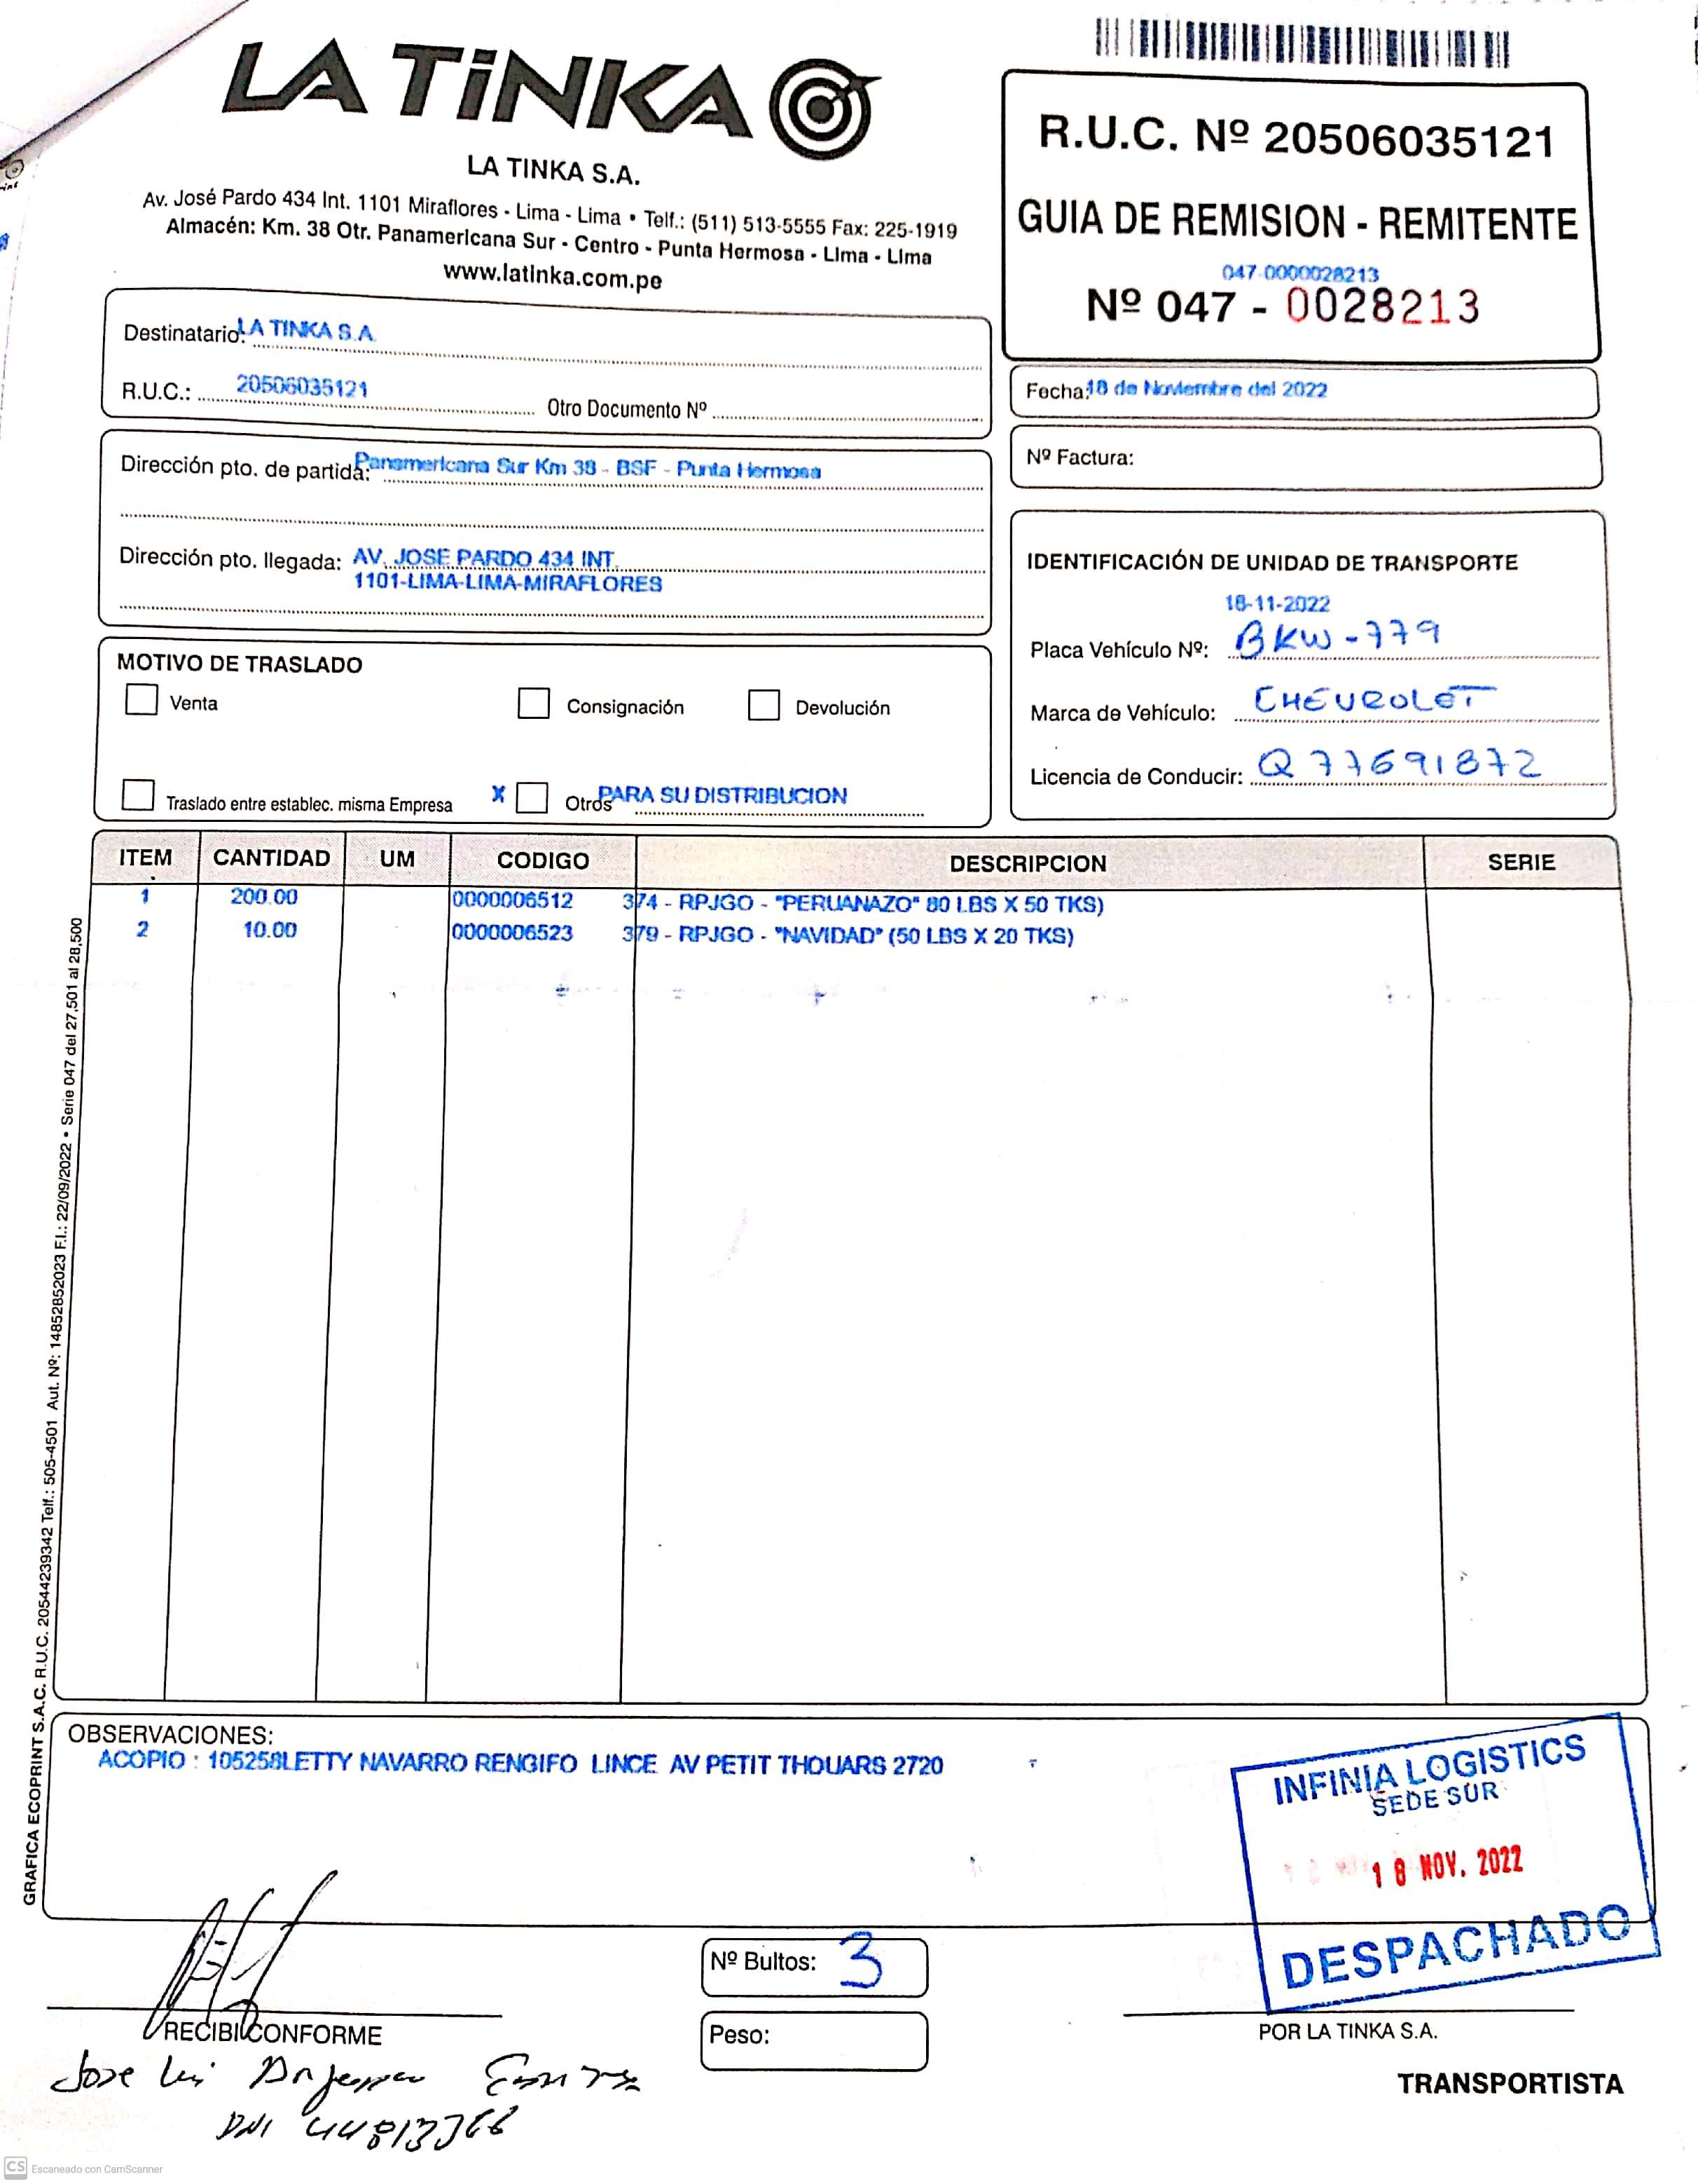 LA TiNKA
LA TINKA S.A.
Av. José Pardo 434 Int. 1101 Miraflores - Lima - Lima • Telf.: (511) 513-5555 Fax: 225-1919
Almacén: Km. 38 Otr. Panamericana Sur - Centro - Punta Hermosa - Lima - Lima
www.latinka.com.pe
R.U.C. Nº 20506035121
GUIA DE REMISION - REMITENTE
047-0000028213
Nº 047 - 0028213
Destinatario: LA TINKA S.A.
R.U.C.: 20506035121 Otro Documento Nº
Fecha: 18 de Noviembre del 2022
Nº Factura:
Dirección pto. de partida: Panamericana Sur Km 38 - BSF - Punta Hermosa
Dirección pto. llegada: AV. JOSE PARDO 434 INT.
1101-LIMA-LIMA-MIRAFLORES
IDENTIFICACIÓN DE UNIDAD DE TRANSPORTE
18-11-2022
Placa Vehículo Nº: BKW-779
Marca de Vehículo: CHEVROLET
Licencia de Conducir: Q77691872
MOTIVO DE TRASLADO
Venta Consignación Devolución
Traslado entre establec. misma Empresa X Otros PARA SU DISTRIBUCION
ITEM CANTIDAD UM CODIGO DESCRIPCION SERIE
1 200.00 0000006512 374 - RPJGO - "PERUANAZO" 80 LBS X 50 TKS)
2 10.00 0000006523 379 - RPJGO - "NAVIDAD" (50 LBS X 20 TKS)
GRAFICA ECOPRINT S.A.C. R.U.C. 20544239342 Telf.: 505-4501 Aut. Nº: 14852852023 F.I.: 22/09/2022 • Serie 047 del 27,501 al 28,500
OBSERVACIONES:
ACOPIO : 105258LETTY NAVARRO RENGIFO LINCE AV PETIT THOUARS 2720
INFINIA LOGISTICS
SEDE SUR
18 NOV. 2022
DESPACHADO
Nº Bultos: 3
Peso:
RECIBI CONFORME
Jose Luis
DNI 44813366
POR LA TINKA S.A.
TRANSPORTISTA
CS Escaneado con CamScanner